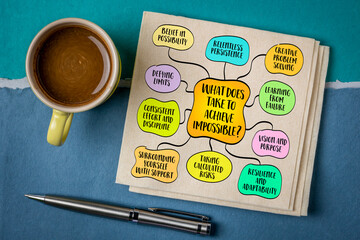 BELIEF IN
POSSIBILITY
RELENTLESS
PERSISTENCE
CREATIVE
PROBLEM
SOLVING
DEFYING
LIMITS
WHAT DOES
TAKE TO
ACHIEVE
IMPOSSIBLE?
LEARNING
FROM
FAILURE
CONSISTENT
EFFORT AND
DISCIPLINE
VISION AND
PURPOSE
SURROUNDING
YOURSELF
WITH SUPPORT
TAKING
CALCULATED
RISKS
RESILIENCE
AND
ADAPTABILITY